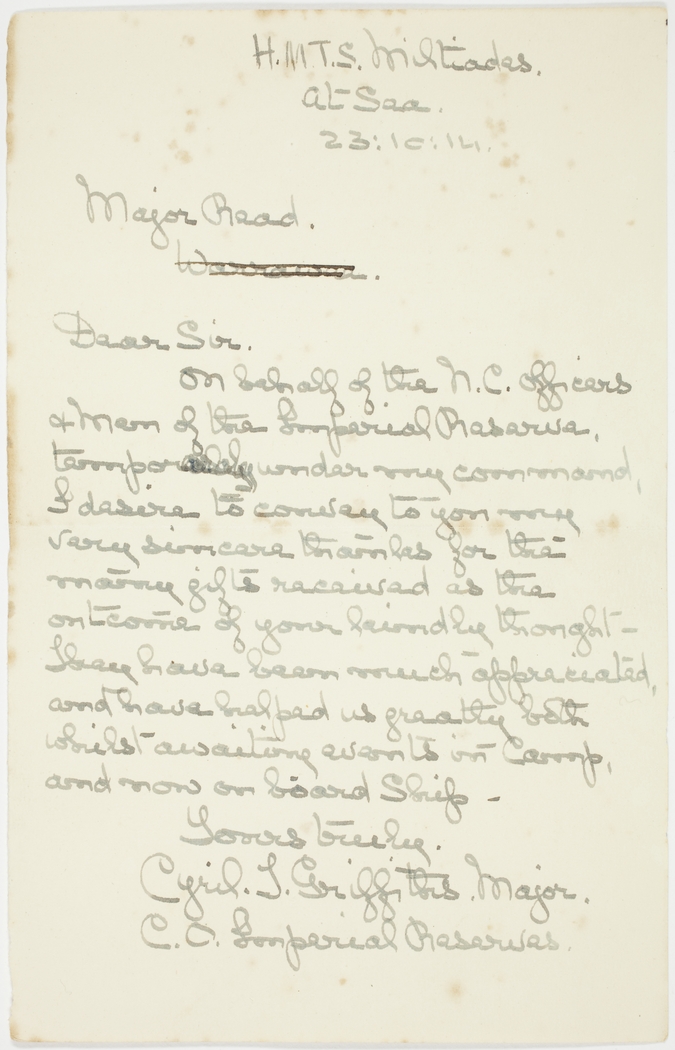 H.M.T.S. Miltiades.
At Sea.
23:10:14.
Major Read.
Dear Sir.
On behalf of the N.C. Officers
& Men of the Imperial Reserve,
temporarily under my command,
I desire to convey to you my
very sincere thanks for the
many gifts received as the
outcome of your kindly thought -
They have been much appreciated,
and have helped us greatly both
whilst awaiting events in Camp,
and now on board Ship -
Yours truly.
Cyril. T. Griffiths. Major.
C.O. Imperial Reserves.